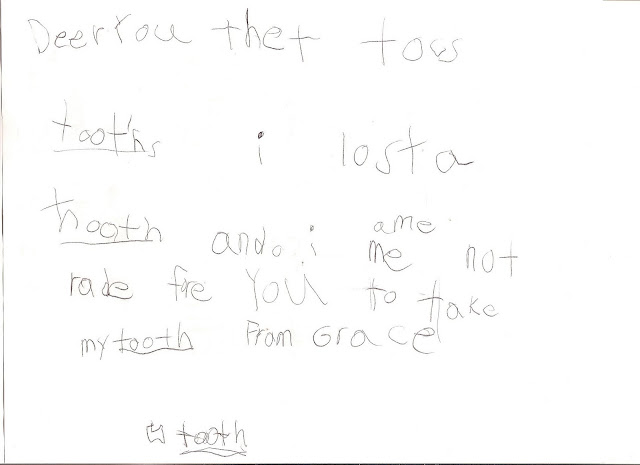 DeerYou thet tows
tooths i lost a
tooth and i ame
me not
rade fre YOU to take
my tooth From Grace
tooth